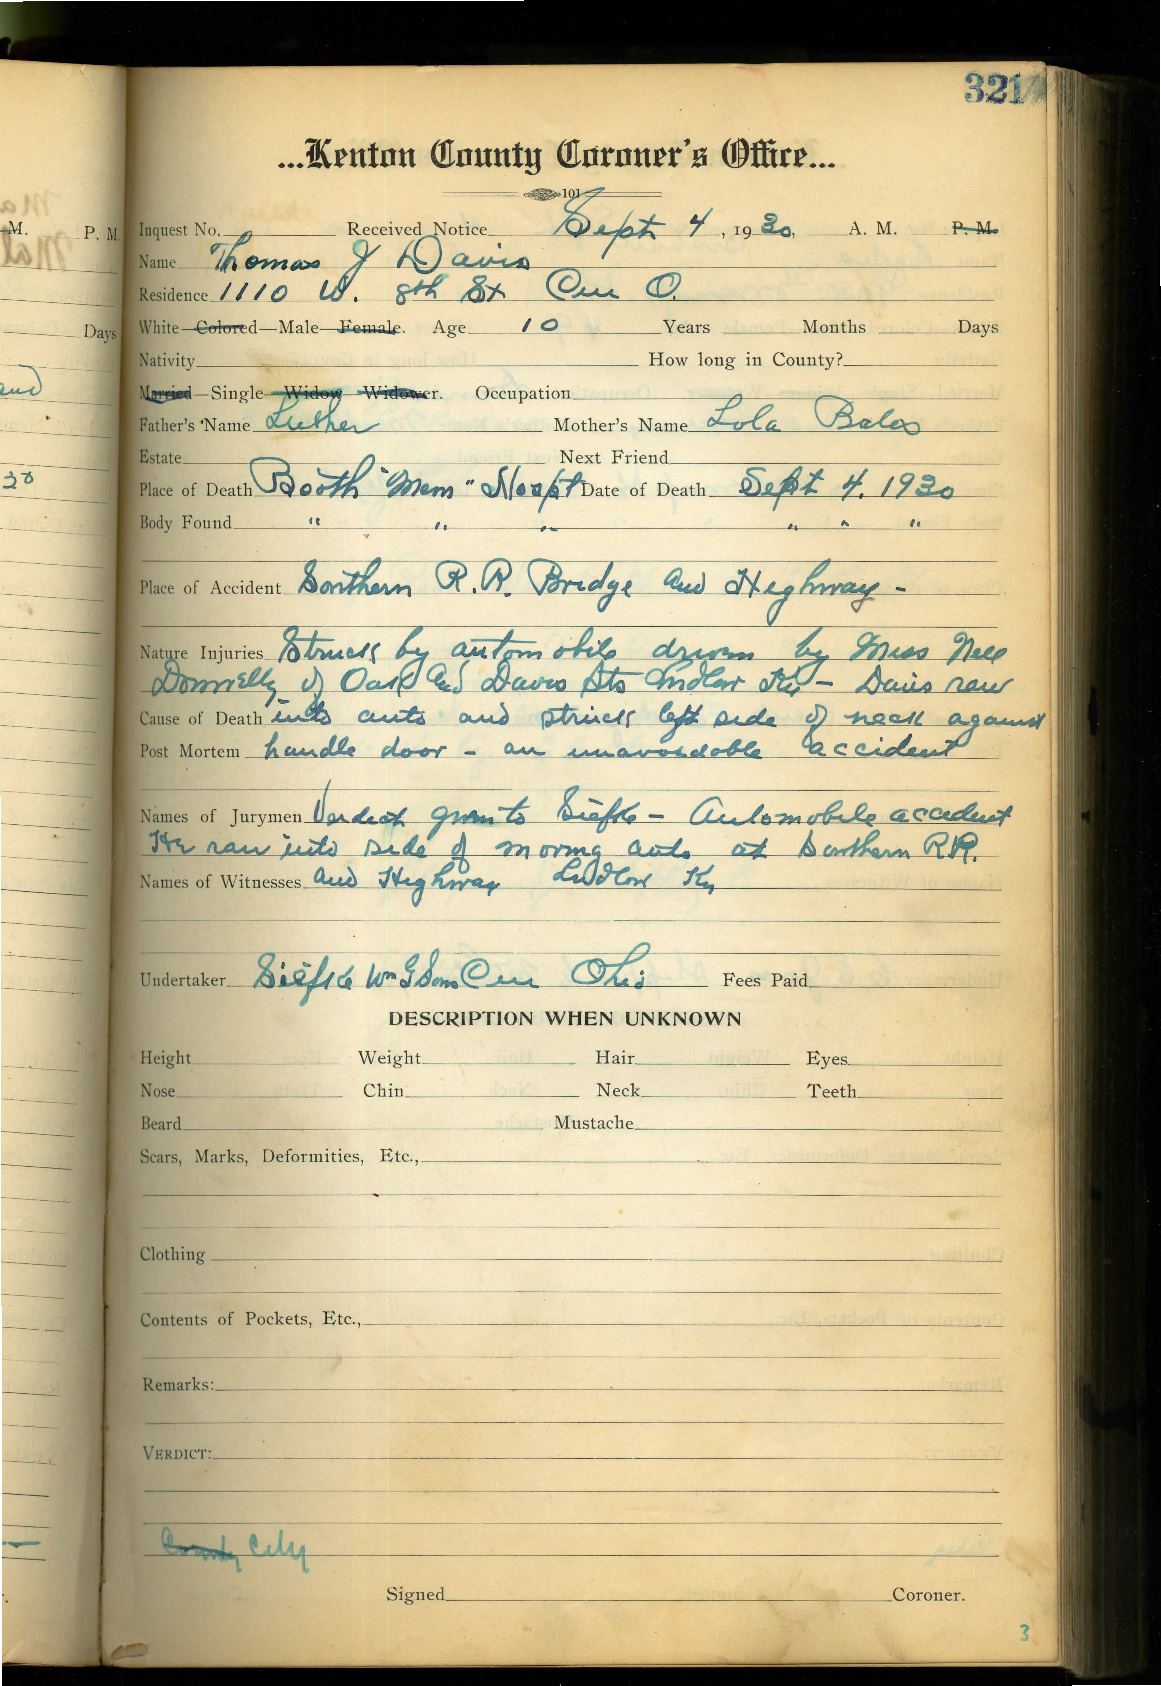 321
...Kenton County Coroner's Office...
101
Inquest No. Received Notice Sept 4, 1930, A. M. P. M.
Name Thomas J Davis
Residence 1110 W. 8th St Cin O.
White—Colored—Male—Female. Age 10 Years Months Days
Nativity How long in County?
Married—Single—Widow—Widower. Occupation
Father's Name Luther Mother's Name Lola Bales
Estate Next Friend
Place of Death Booth "Mem" Hospt Date of Death Sept 4. 1930
Body Found " " " " " "
Place of Accident Southern R.R. Bridge and Highway -
Nature Injuries Struck by automobile driven by Miss Nell
Donnelly of Oak and Davis Sts Ludlow Ky - Davis ran
Cause of Death into auto and struck left side of neck against
Post Mortem handle door - an unavoidable accident
Names of Jurymen Verdict given to Siefke - Automobile accident
He ran into side of moving auto at Southern RR.
Names of Witnesses and Highway Ludlow Ky
Undertaker Siefke Wm G Sons Cin Ohio Fees Paid
DESCRIPTION WHEN UNKNOWN
Height Weight Hair Eyes
Nose Chin Neck Teeth
Beard Mustache
Scars, Marks, Deformities, Etc.,
Clothing
Contents of Pockets, Etc.,
Remarks:
VERDICT:
County City
Signed Coroner.
3
M. P. M.
Days
and
30